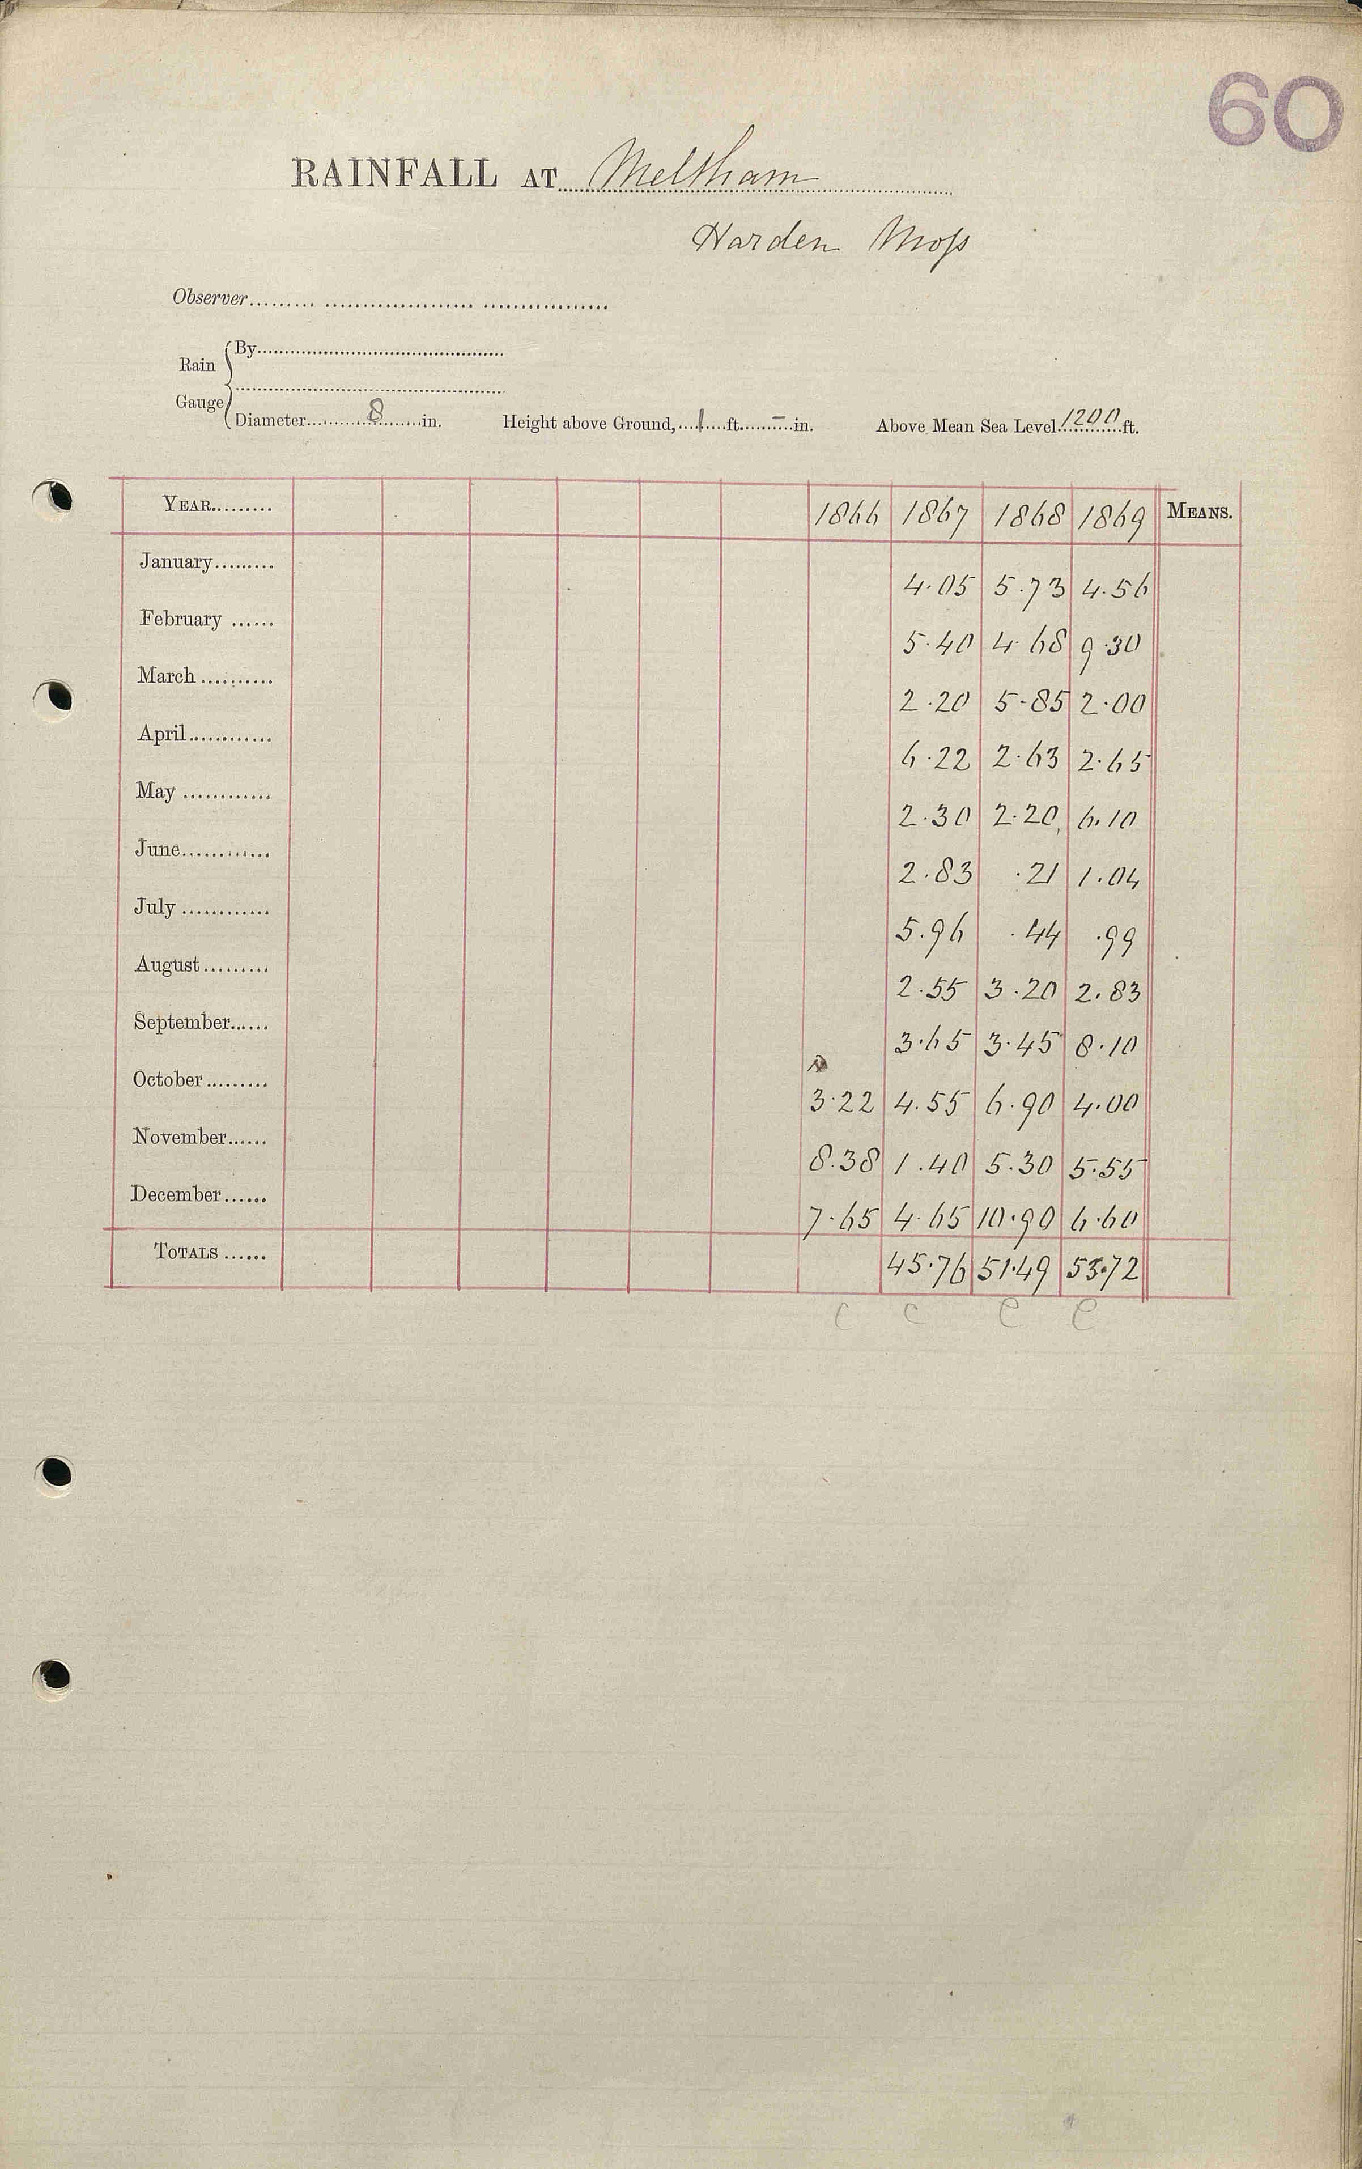 60
RAINFALL AT Meltham
Harden Moss
Observer
Rain Gauge
By
Diameter 8 in. Height above Ground, 1 ft. - in. Above Mean Sea Level 1200 ft.
YEAR 1866 1867 1868 1869 MEANS.
January 4.05 5.73 4.56
February 5.40 4.68 9.30
March 2.20 5.85 2.00
April 6.22 2.63 2.65
May 2.30 2.20 6.10
June 2.83 .21 1.04
July 5.96 .44 .99
August 2.55 3.20 2.83
September 3.65 3.45 8.10
October 3.22 4.55 6.90 4.00
November 8.38 1.40 5.30 5.55
December 7.65 4.65 10.90 6.60
TOTALS 45.76 51.49 53.72
C C C C